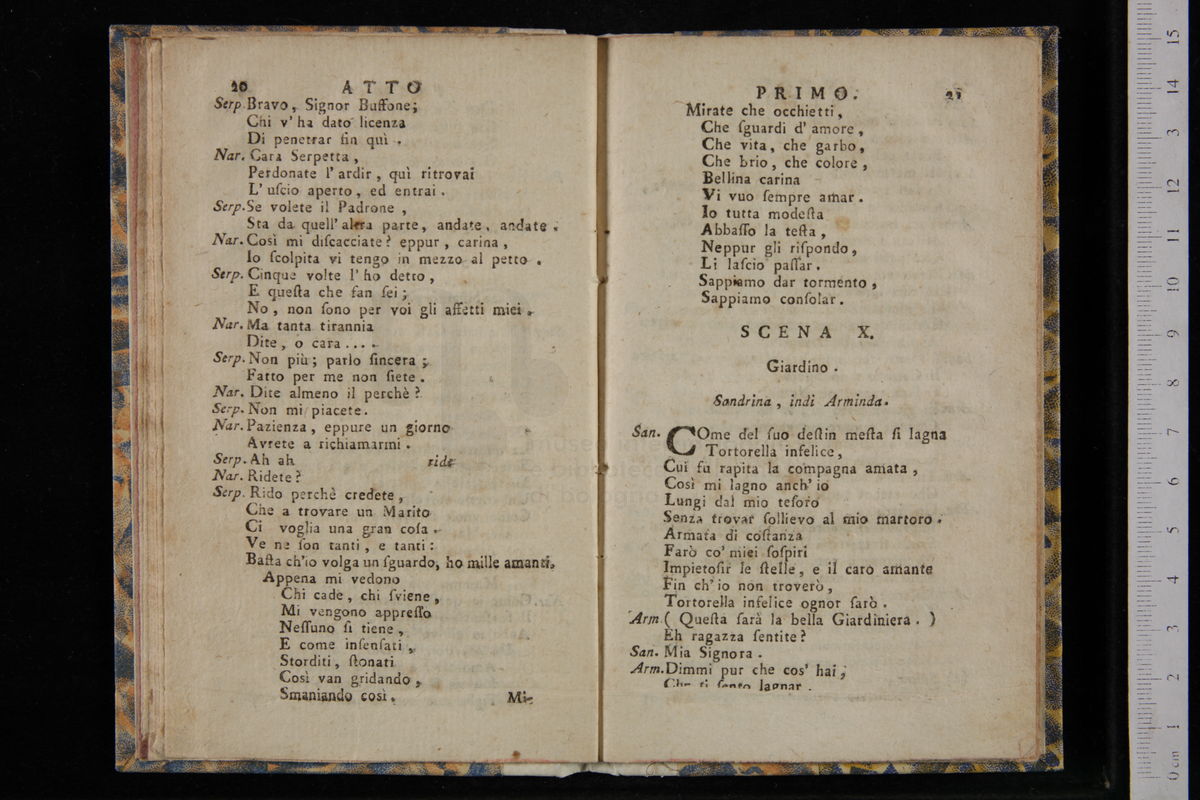 20 ATTO
Serp. Bravo, Signor Buffone;
Chi v' ha dato licenza
Di penetrar fin quì .
Nar. Cara Serpetta,
Perdonate l' ardir, quì ritrovai
L' uſcio aperto, ed entrai.
Serp. Se volete il Padrone,
Sta da quell' altra parte, andate, andate.
Nar. Così mi diſcacciate? eppur, carina,
Io ſcolpita vi tengo in mezzo al petto.
Serp. Cinque volte l' ho detto,
E queſta che fan ſei;
No, non ſono per voi gli affetti miei.
Nar. Ma tanta tirannia
Dite, o cara....
Serp. Non più; parlo ſincera;
Fatto per me non ſiete.
Nar. Dite almeno il perchè?
Serp. Non mi piacete.
Nar. Pazienza, eppure un giorno
Avrete a richiamarmi.
Serp. Ah ah ride
Nar. Ridete?
Serp. Rido perchè credete,
Che a trovare un Marito
Ci voglia una gran coſa.
Ve ne ſon tanti, e tanti:
Baſta ch'io volga un ſguardo, ho mille amanti.
Appena mi vedono
Chi cade, chi ſviene,
Mi vengono appreſſo
Neſſuno ſi tiene,
E come inſenſati,
Storditi, ſtonati
Così van gridando,
Smaniando così.
Mi-
PRIMO. 21
Mirate che occhietti,
Che ſguardi d' amore,
Che vita, che garbo,
Che brio, che colore,
Bellina carina
Vi vuo ſempre amar.
Io tutta modeſta
Abbaſſo la teſta,
Neppur gli riſpondo,
Li laſcio paſſar.
Sappiamo dar tormento,
Sappiamo conſolar.
SCENA X.
Giardino.
Sandrina, indi Arminda.
San. COme del ſuo deſtin meſta ſi lagna
Tortorella infelice,
Cui fu rapita la compagna amata,
Così mi lagno anch' io
Lungi dal mio teſoro
Senza trovar ſollievo al mio martoro.
Armata di coſtanza
Farò co' miei ſoſpiri
Impietoſir le ſtelle, e il caro amante
Fin ch' io non troverò,
Tortorella infelice ognor ſarò.
Arm. ( Queſta ſarà la bella Giardiniera. )
Eh ragazza ſentite?
San. Mia Signora.
Arm. Dimmi pur che cos' hai,
Che ti ſento lagnar.
15
14
13
12
11
10
9
8
7
6
5
4
3
2
1
0 cm